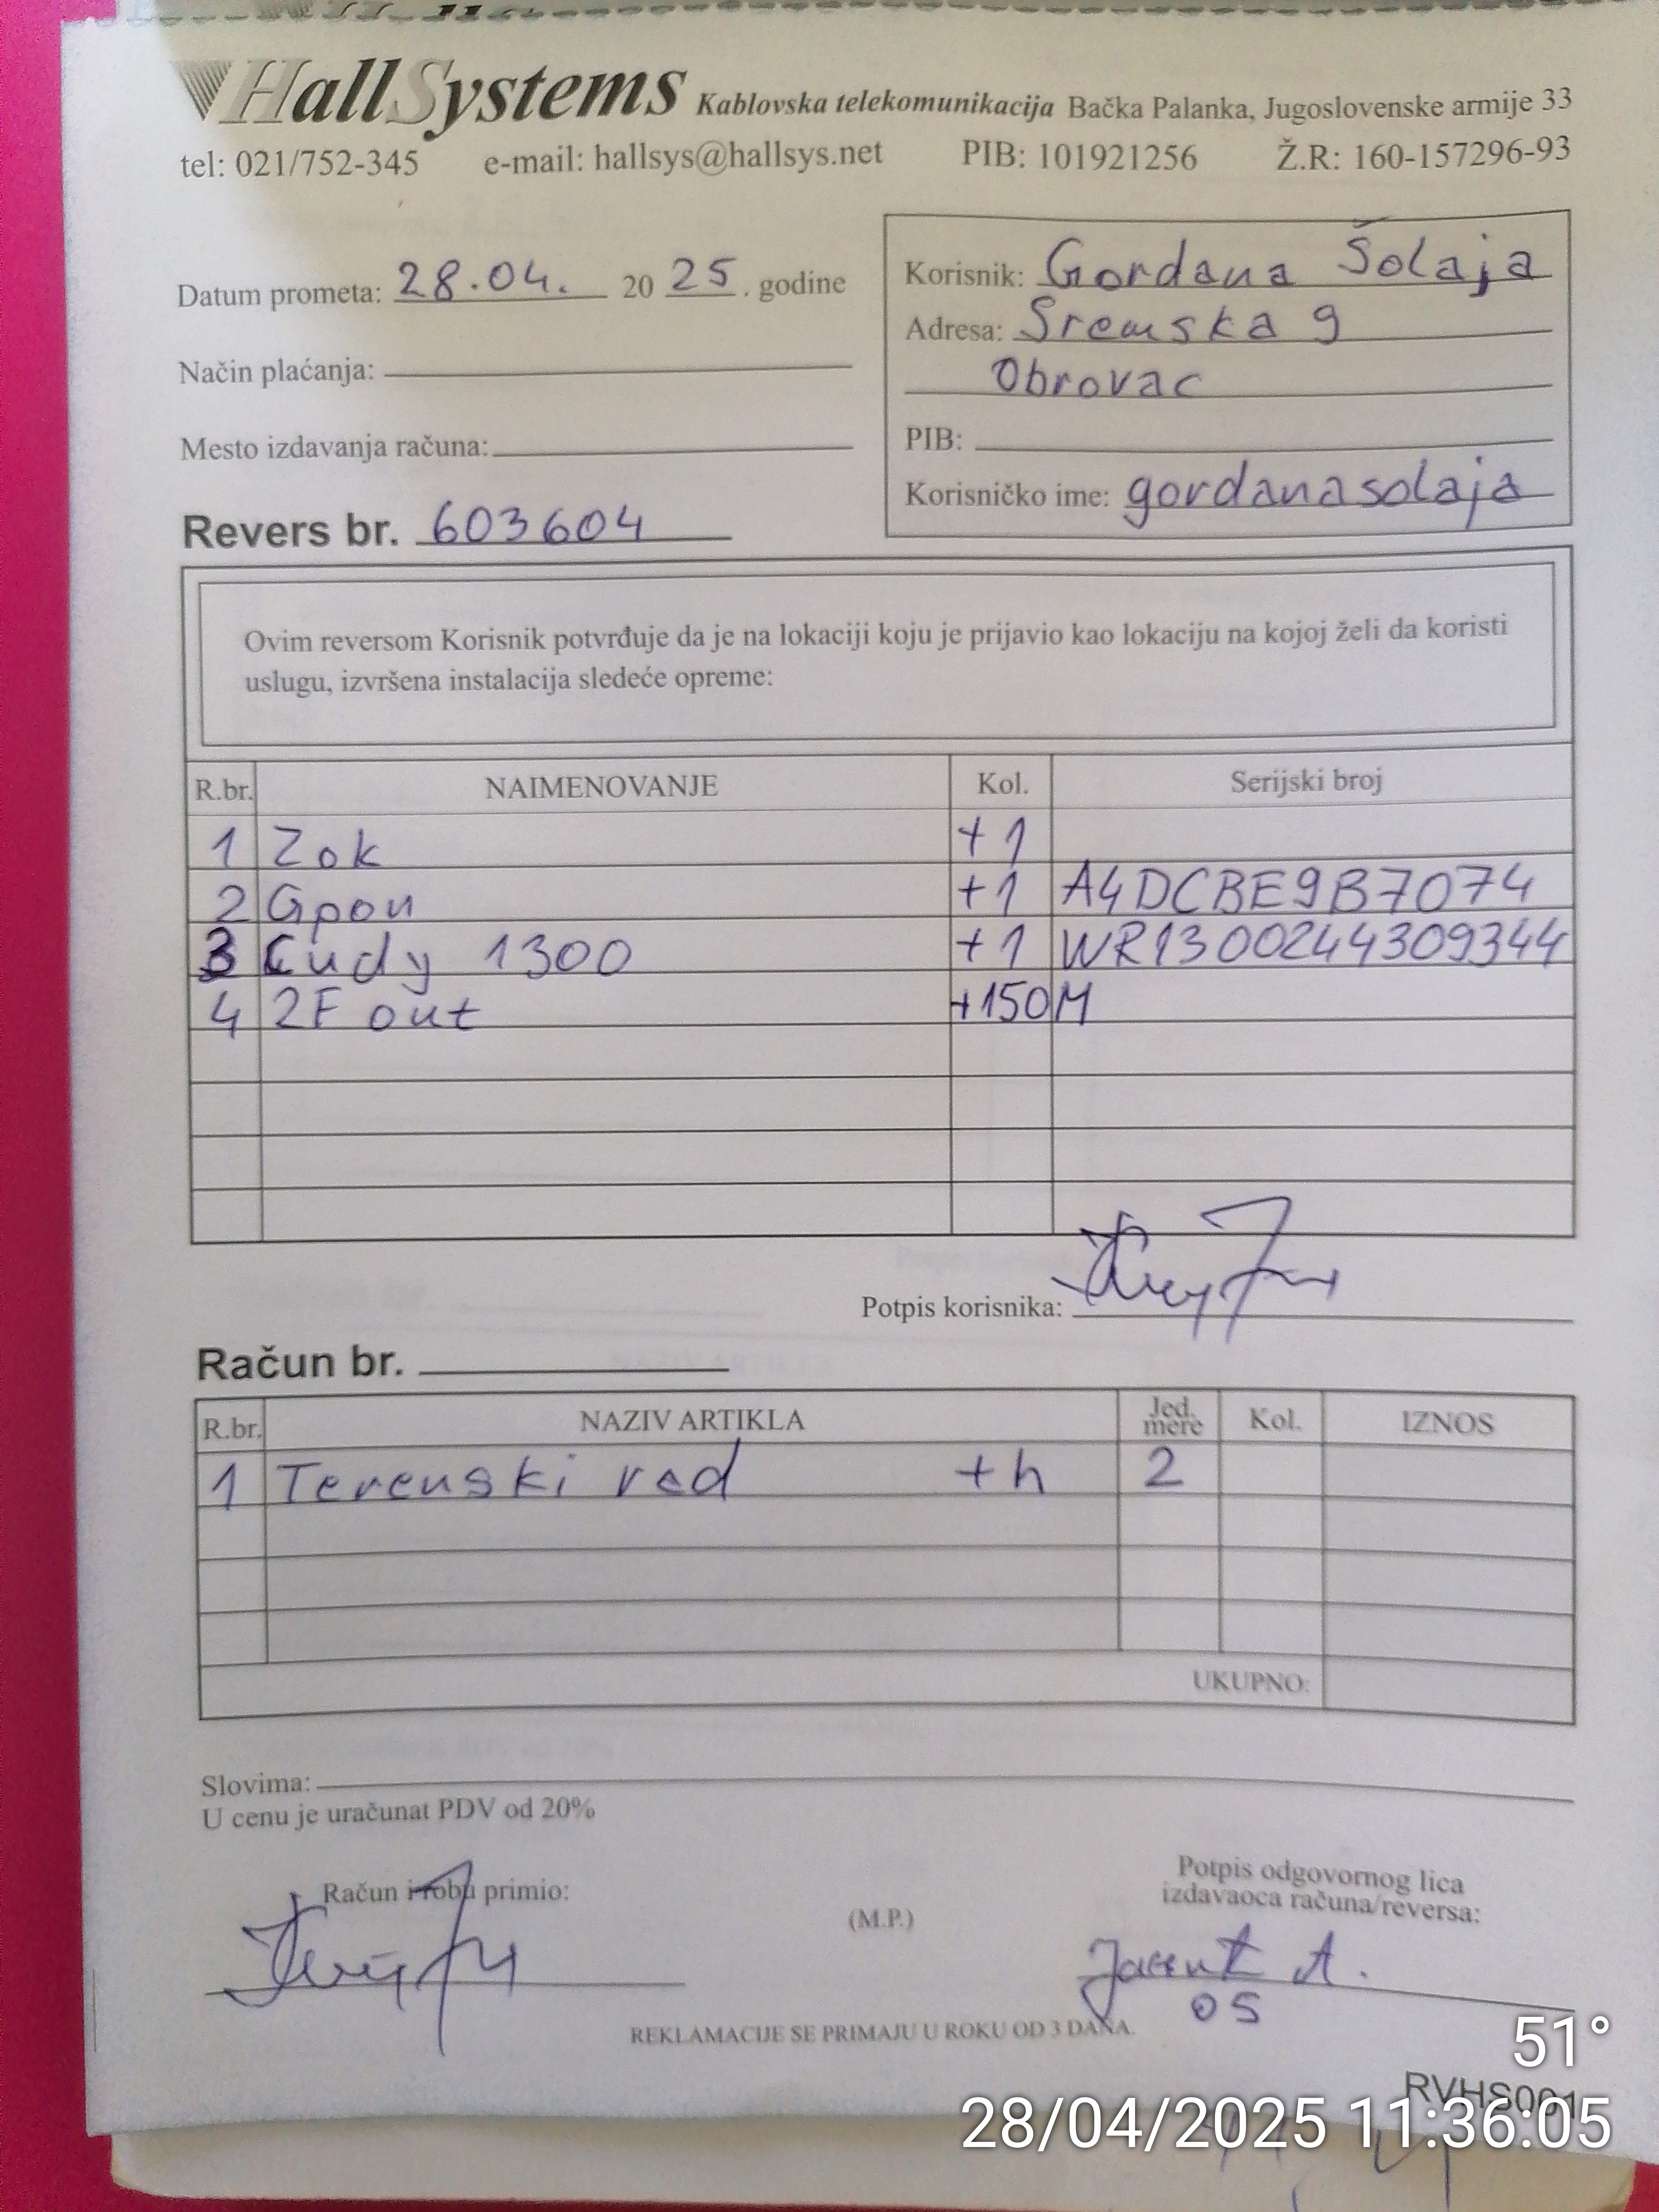 HallSystems Kablovska telekomunikacija Bačka Palanka, Jugoslovenske armije 33
tel: 021/752-345 e-mail: hallsys@hallsys.net PIB: 101921256 Ž.R: 160-157296-93
Datum prometa: 28.04. 2025. godine
Način plaćanja:
Mesto izdavanja računa:
Revers br. 603604
Korisnik: Gordana Šolaja
Adresa: Sremska 9
Obrovac
PIB:
Korisničko ime: gordanasolaja
Ovim reversom Korisnik potvrđuje da je na lokaciji koju je prijavio kao lokaciju na kojoj želi da koristi
uslugu, izvršena instalacija sledeće opreme:
R.br. NAIMENOVANJE Kol. Serijski broj
1 Zok +1
2 Gpon +1 A4DCBE9B7074
3 Cudy 1300 +1 WR1300244309344
4 2F out +150M
Potpis korisnika:
Račun br.
R.br. NAZIV ARTIKLA Jed. mere Kol. IZNOS
1 Terenski rad +h 2
UKUPNO:
Slovima:
U cenu je uračunat PDV od 20%
Račun i robu primio:
(M.P.)
Potpis odgovornog lica
izdavaoca računa/reversa:
A.
05
REKLAMACIJE SE PRIMAJU U ROKU OD 3 DANA.
51°
RVHS001
28/04/2025 11:36:05